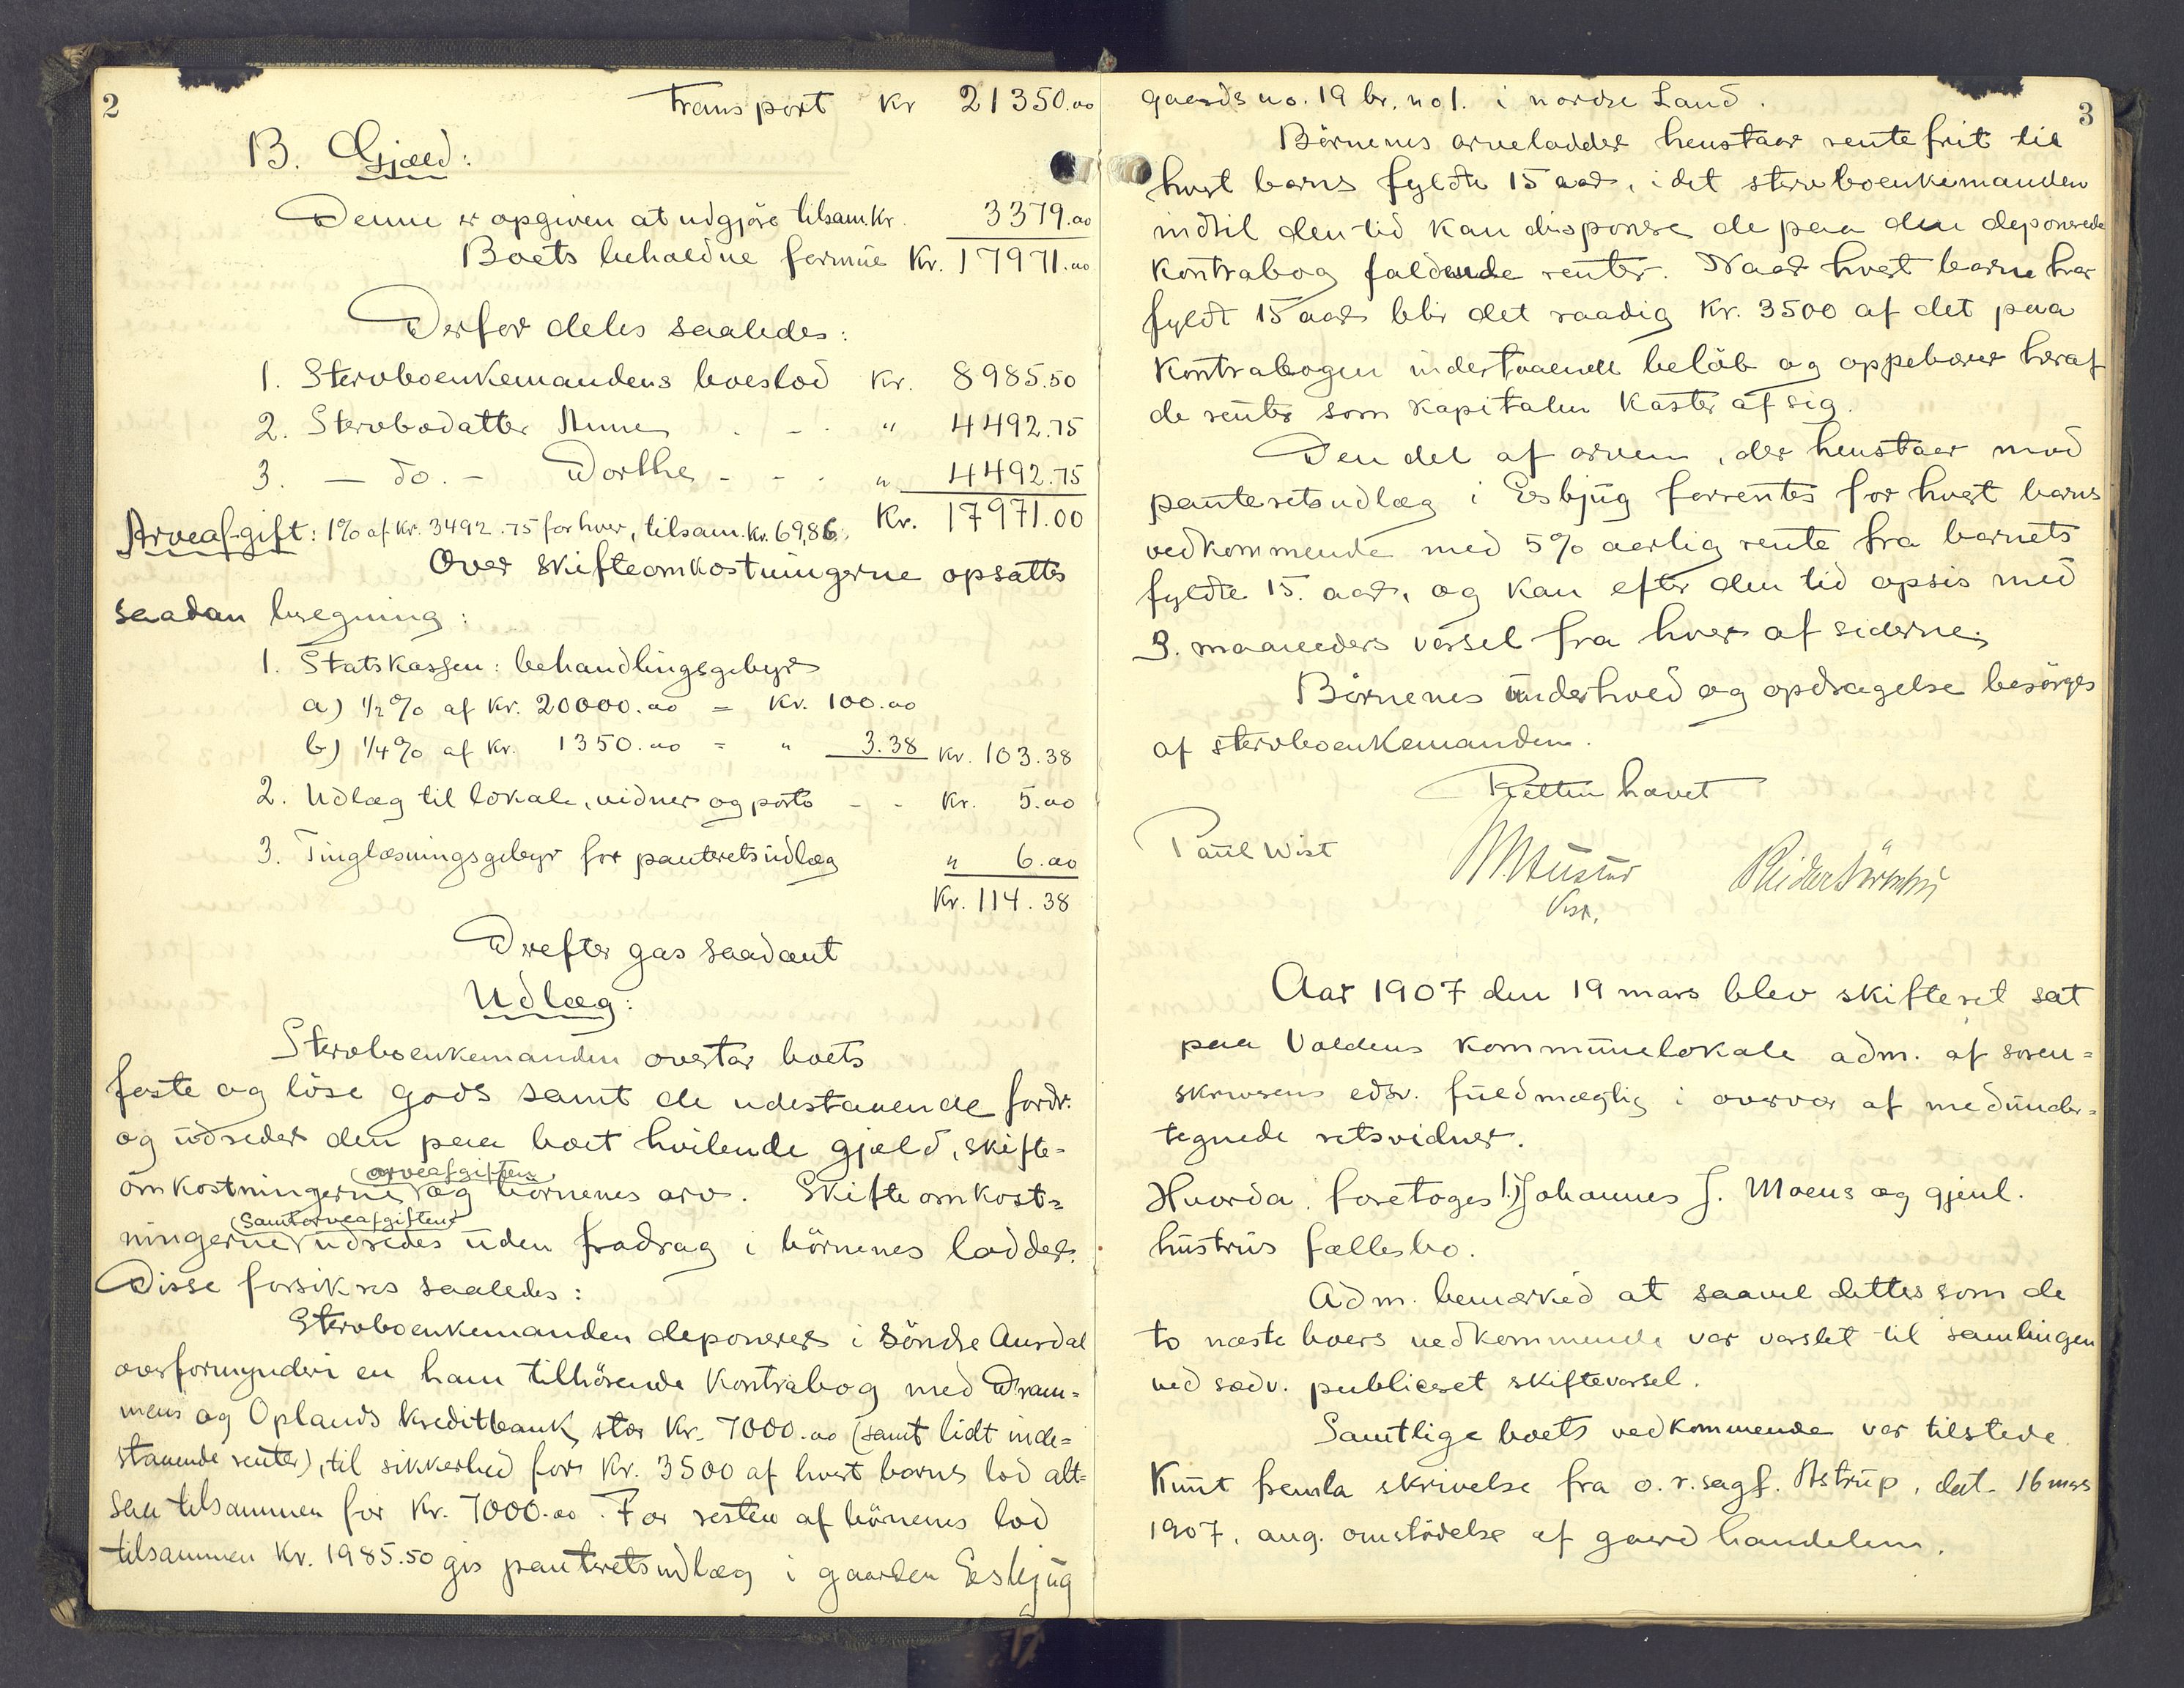 2
Transport Kr 21350.00
B. Gjæld:
Denne er opgiven at udgjöre tilsam. Kr. 3379.00
Boets beholdne formue Kr. 17971.00
Derfor deles saaledes:
1. Stervboenkemandens boeslod Kr. 8985.50
2. Stervbodatter Anne - - - " 4492.75
3. - do. - Dorthe - - - " 4492.75
Kr. 17971.00
Arveafgift: 1% af Kr. 3492.75 for hver, tilsam. kr. 69,86.
Over skifteomkostningerne opsattes
saadan beregning:
1. Statskassen: behandlingsgebyr
a) 1/2% af Kr. 20000.00 = Kr. 100.00
b) 1/4% af Kr. 1350.00 = " 3.38 Kr. 103.38
2. Udlæg til lokale, vidner og porto - - Kr. 5.00
3. Tinglæsningsgebyr for panteretsudlæg " 6.00
Kr. 114.38
Derefter gas saadant
Udlæg:
Stervboenkemanden overtar boets
faste og löse gods samt de udestaaende fordr.
og udreder den paa boet hvilende gjæld, skifte=
omkostningerne (arveafgiften) og börnenes arv. Skifteomkost=
ningerne (samt arveafgiften) udredes uden fradrag i börnenes lodder.
Disse forsikres saaledes:
Stervboenkemanden deponerer i Söndre Aurdal
overformynderi en ham tilhörende Kontrabog med Dram=
mens og Oplands kreditbank, stor Kr. 7000.00 (samt lidt inde=
staaende renter), til sikkerhed for Kr. 3500 af hvert barns lod alt=
saa tilsammen for Kr. 7000.00. For resten af börnenes lod
tilsammen Kr. 1985.50 gis panteretsudlæg i gaarden Esbjug
3
gaards no. 19 br. no 1. i nordre Land.
Börnenes arvelodder henstaar rentefrit til
hvert barns fyldte 15 aar, idet stervboenkemanden
indtil den tid kan disponere de paa den deponerede
Kontrabog faldende renter. Naar hvert barn har
fyldt 15 aar blir det raadig Kr. 3500 af det paa
Kontrabogen indestaaende belöb og oppebærer heraf
de renter som kapitalen kaster af sig.
Den del af arven, der henstaar mod
panteretsudlæg i Esbjug forrentes for hvert barns
vedkommende med 5% aarlig rente fra barnets
fyldte 15. aar, og kan efter den tid opsis med
3. maaneders varsel fra hver af siderne.
Börnenes underhold og opdragelse besörges
af stervboenkemanden.
Retten hævet
Paul Wist
Aar 1907 den 19 mars blev skifteret sat
paa Voldens kommunelokale adm. af soren=
skriverens edsv. fuldmægtig i overvær af medunder=
tegnede retsvidner.
Hvorda foretoges 1.) Johannes J. Moens og gjenl.
hustrus fællesbo.
Adm. bemærked at saavel dettes som de
to næste boers vedkommende var varslet til samlingen
ved sædv. publiceret skiftevarsel.
Samtlige boets vedkommende var tilstede.
Knut fremla skrivelse fra o.r.sagf. Astrup, dat. 16 mars
1907. ang. omstödelse af gaardhandelen.